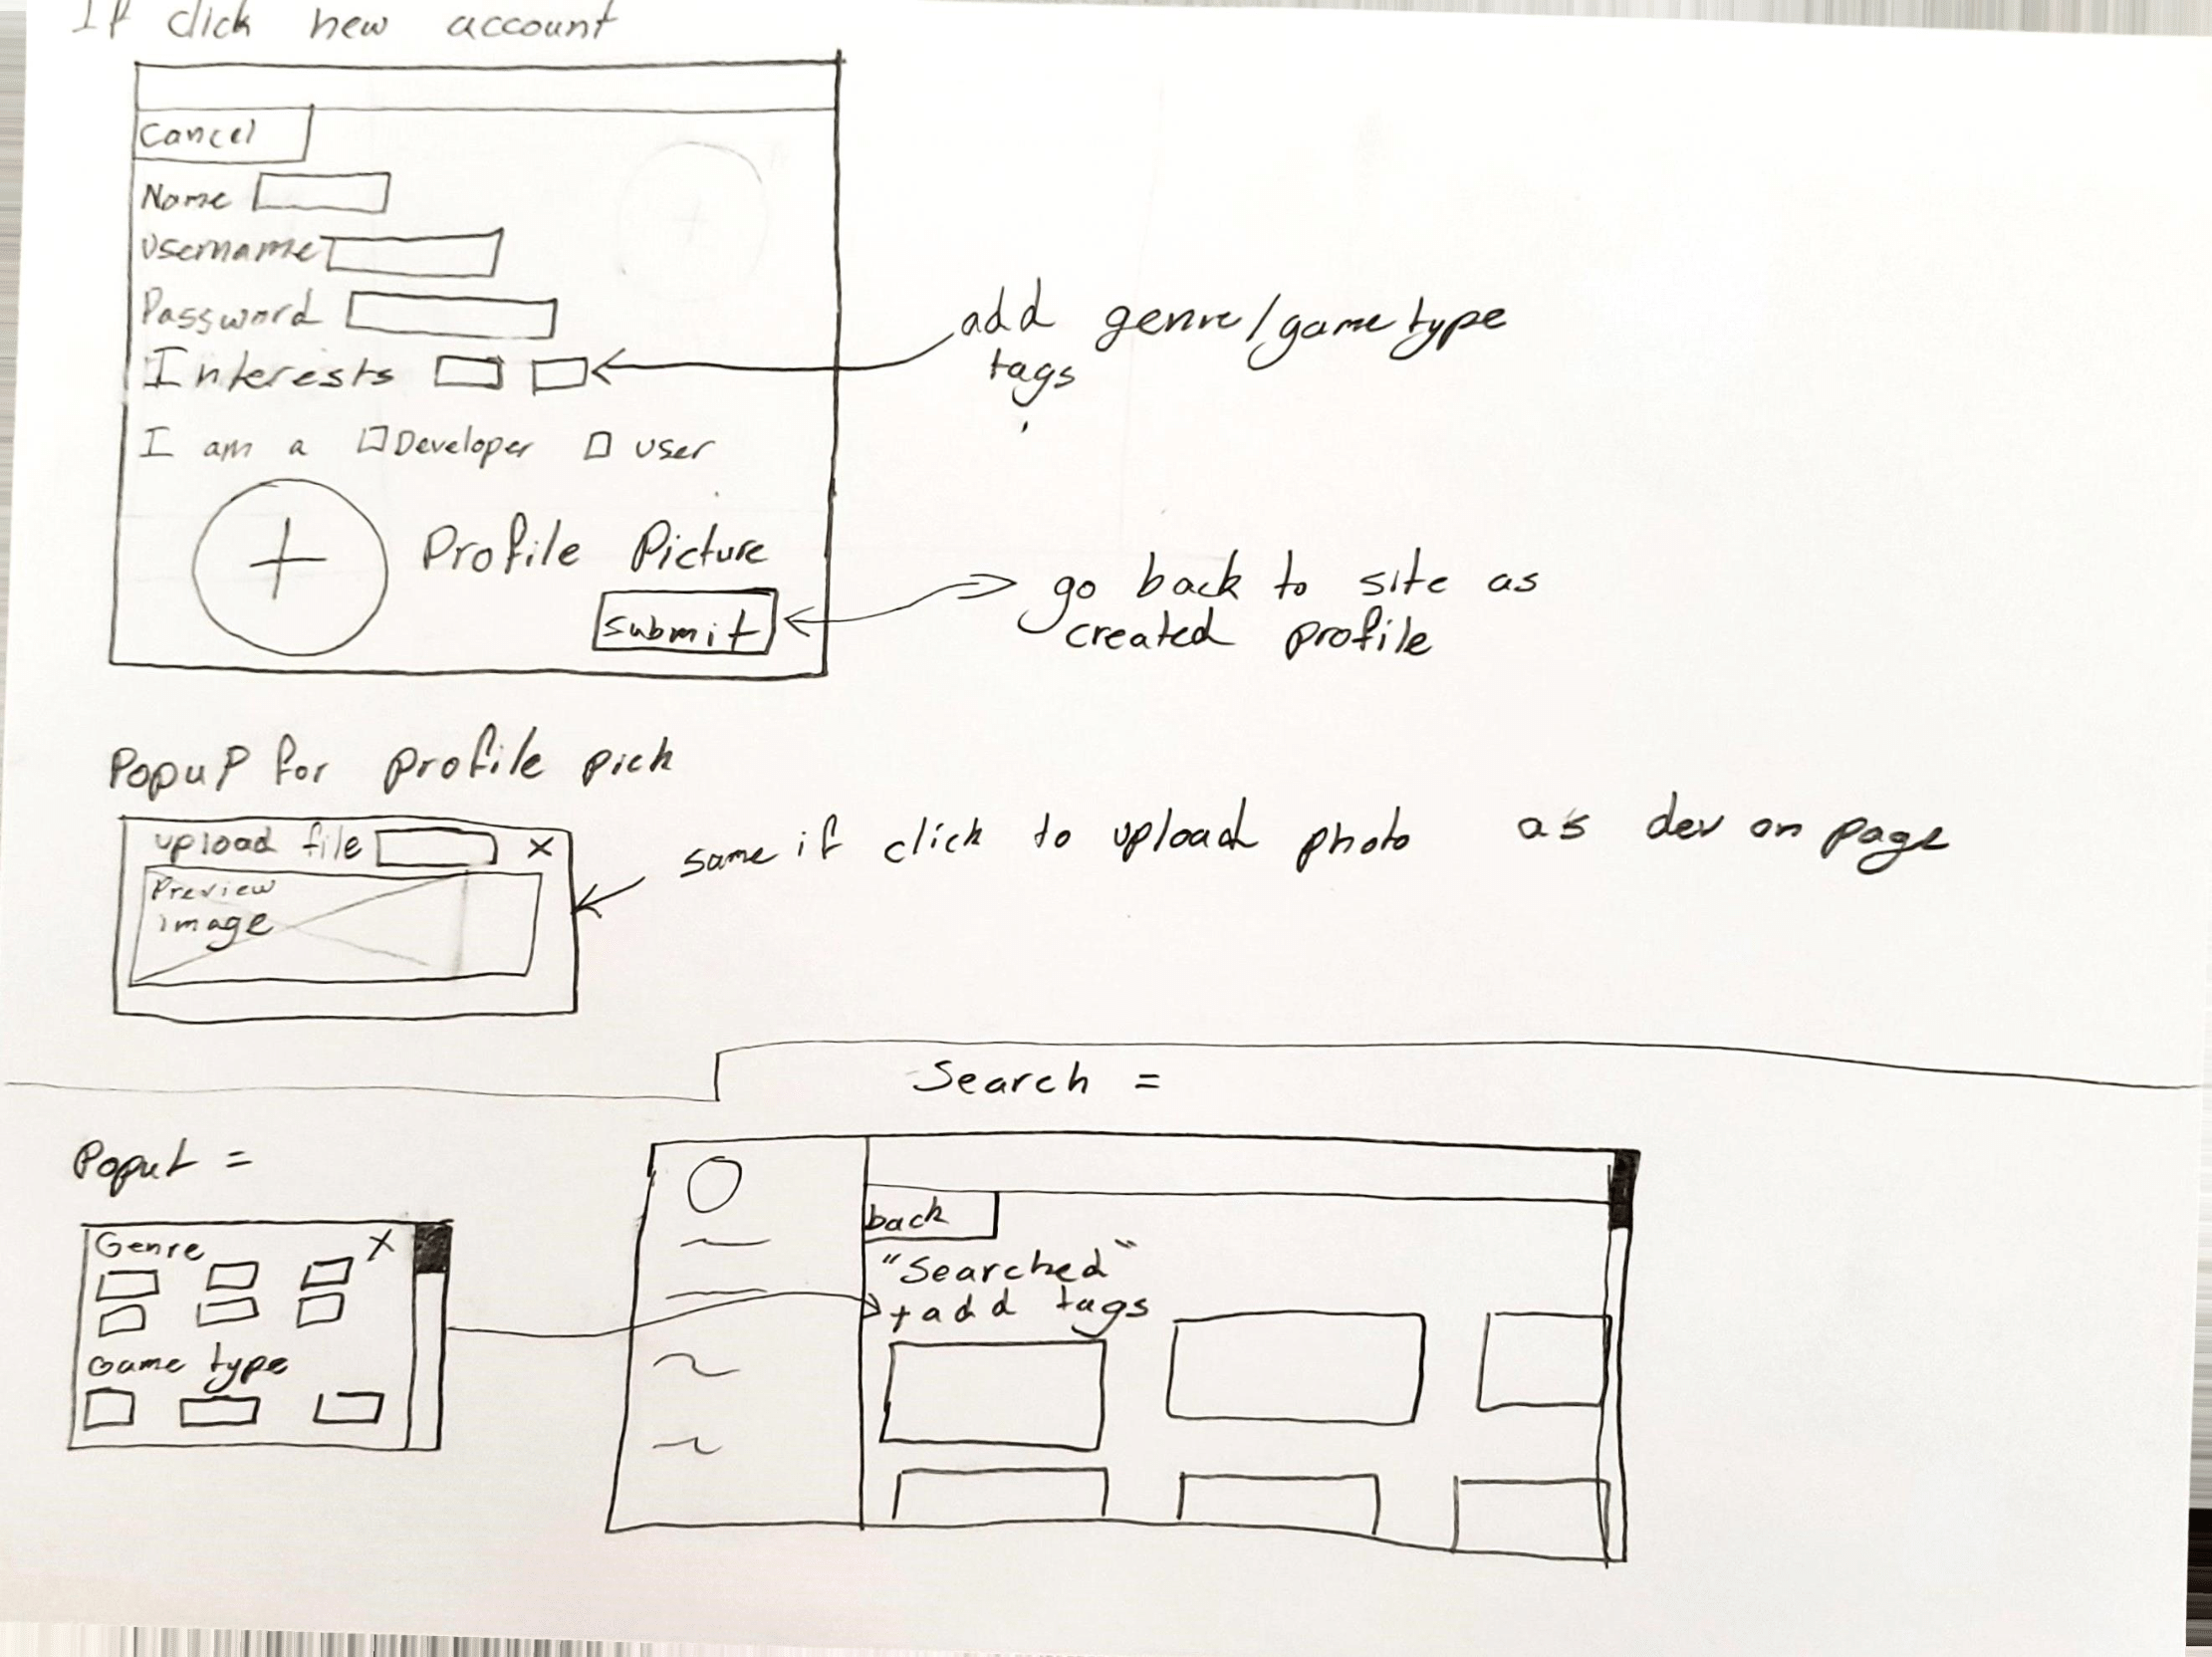 If click new account
Cancel
Name
Username
Password
Interests
add genre/gametype
tags
I am a Developer user
Profile Picture
Submit
go back to site as
created profile
PopuP for profile pick
upload file X
Preview
image
same if click to upload photo as dev on page
Search =
Genre X
Game type
back
"Searched"
+add tags